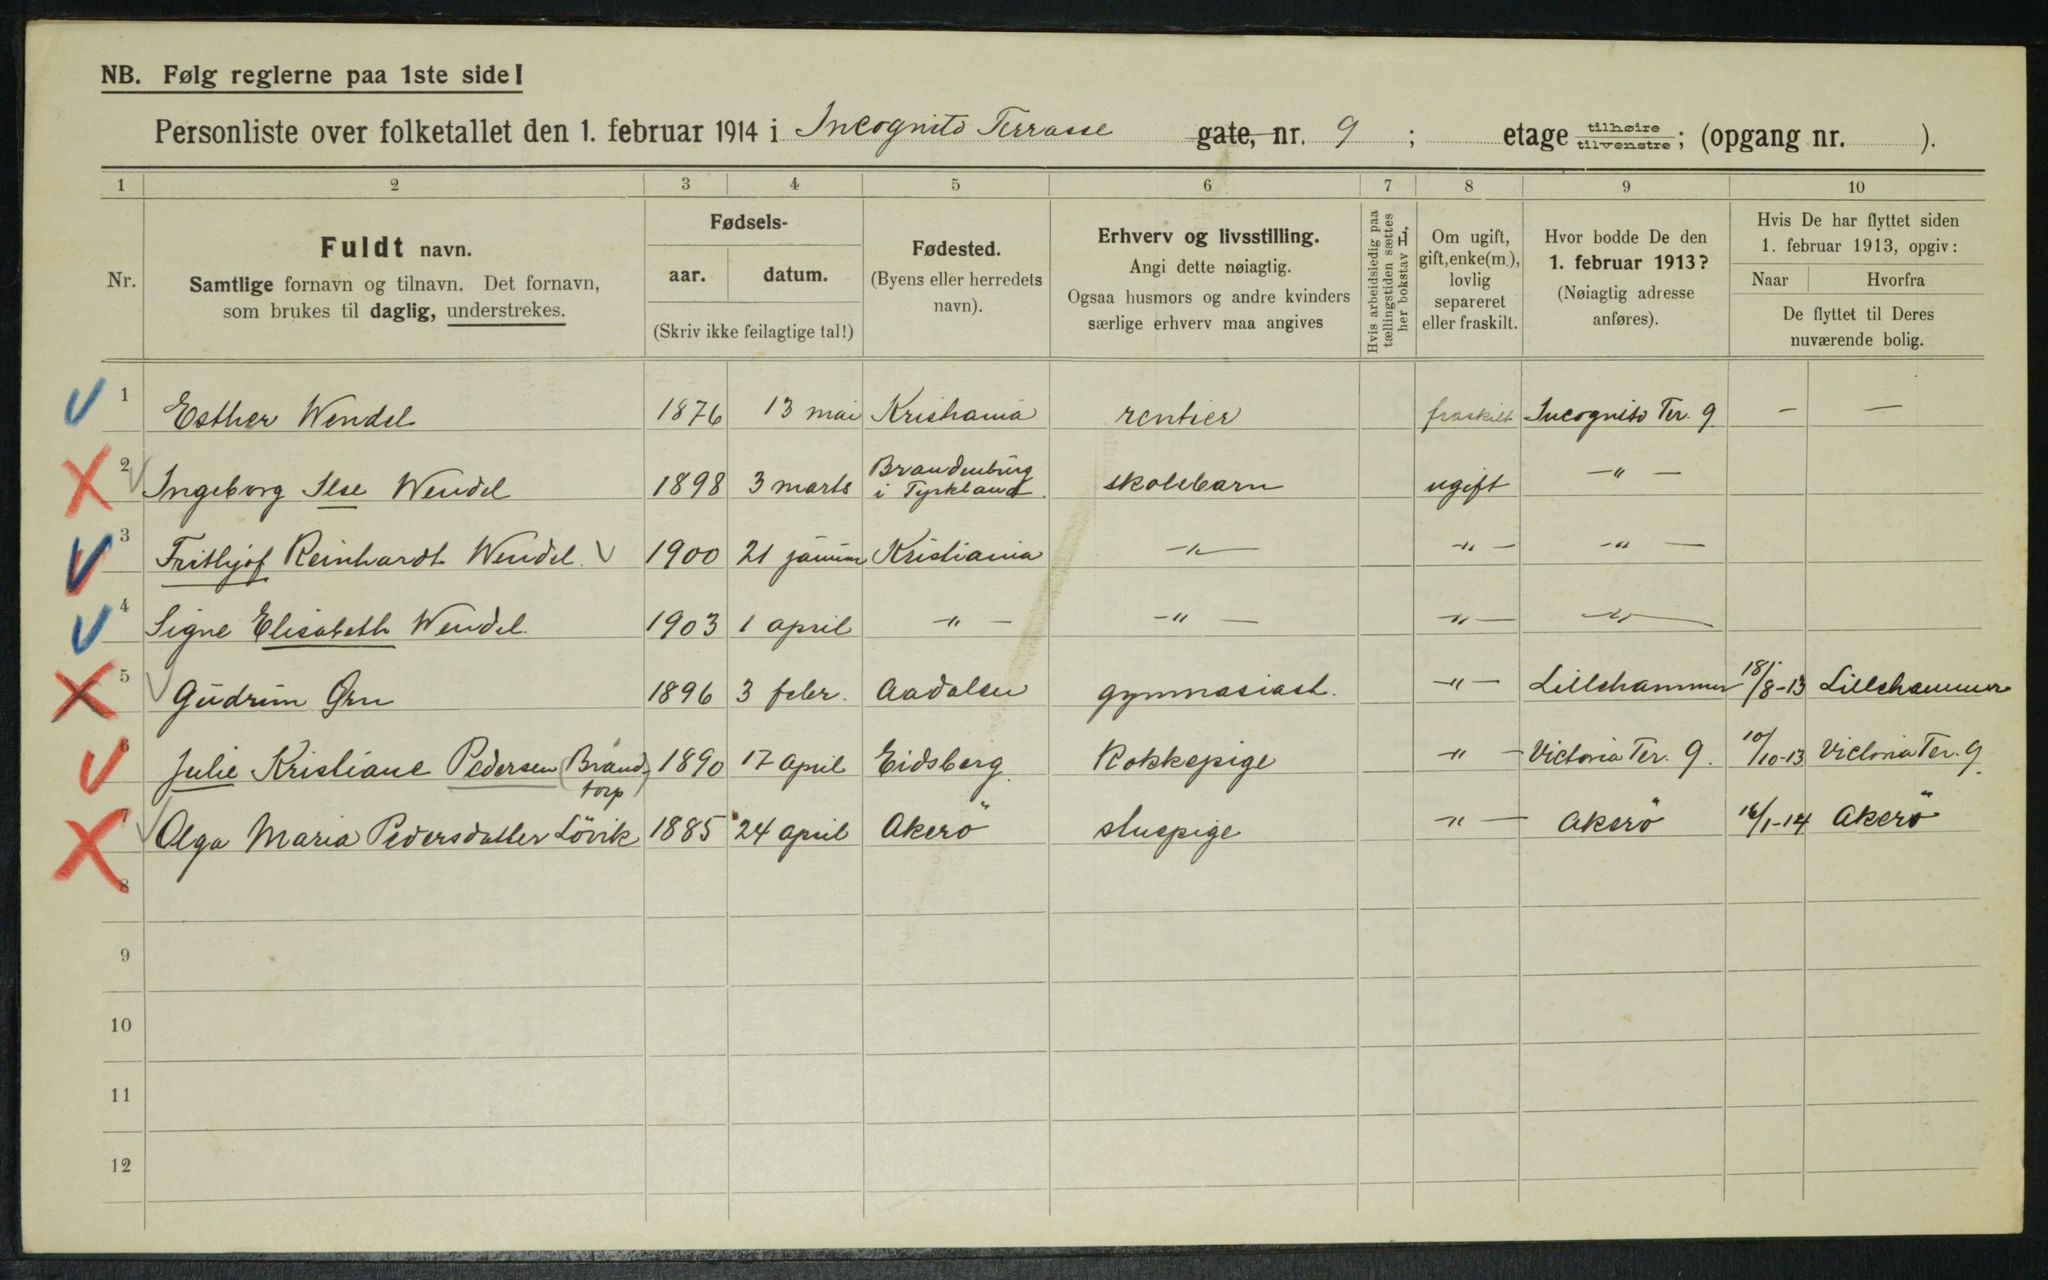 NB. Følg reglerne paa 1ste side!
Personliste over folketallet den 1. februar 1914 i Incognito Terrasse gate, nr. 9 ; etage tilhøire tilvenstre ; (opgang nr. ).
1 2 3 4 5 6 7 8 9 10
Nr.
Fuldt navn.
Samtlige fornavn og tilnavn. Det fornavn,
som brukes til daglig, understrekes.
Fødsels-
aar. datum.
(Skriv ikke feilagtige tal!)
Fødested.
(Byens eller herredets
navn).
Erhverv og livsstilling.
Angi dette nøiagtig.
Ogsaa husmors og andre kvinders
særlige erhverv maa angives
Hvis arbeidsledig paa
tællingstiden sættes
her bokstav H,
Om ugift,
gift, enke(m.),
lovlig
separeret
eller fraskilt.
Hvor bodde De den
1. februar 1913?
(Nøiagtig adresse
anføres).
Hvis De har flyttet siden
1. februar 1913, opgiv:
Naar Hvorfra
De flyttet til Deres
nuværende bolig.
1 Esther Wendel 1876 13 mai Kristiania rentier fraskilt Incognito Ter. 9 — —
2 Ingeborg Ilse Wendel 1898 3 marts Brandenburg i Tyskland skolebarn ugift —"—
3 Frithjof Reinhardt Wendel. 1900 21 januar Kristiania —"— —"— —"—
4 Signe Elisabeth Wendel. 1903 1 april —"— —"— —"— —"—
5 Gudrun Ørn 1896 3 febr. Aadalen gymnasiast. —"— Lillehammer 18/8-13 Lillehammer
6 Julie Kristiane Pedersen (Brandtorp) 1890 17 april Eidsberg Kokkepige —"— Victoria Ter. 9. 10/10-13 Victoria Ter. 9.
7 Olga Maria Pedersdatter Lövik 1885 24 april Akerö stuepige —"— Akerö 16/1-14 Akerö
8
9
10
11
12